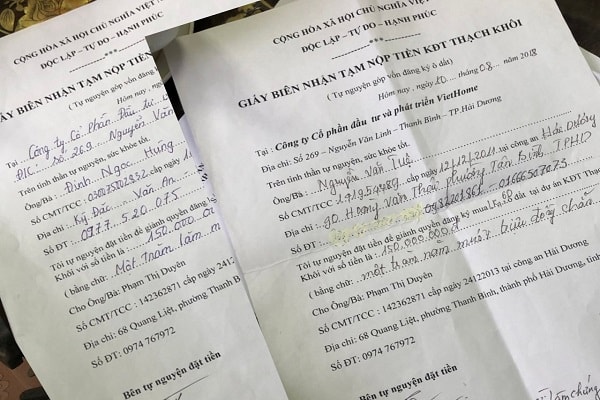 CỘNG HÒA XÃ HỘI CHỦ NGHĨA VIỆT
ĐỘC LẬP – TỰ DO – HẠNH PHÚC
GIẤY BIÊN NHẬN TẠM NỘP TIỀN
(Tự nguyện góp vốn đăng ký
Hôm nay, ngày
Tại : Công ty Cổ Phần Đầu tư
Đ/C: Số 269 Nguyễn Văn
Trên tinh thần tự nguyện, sức khỏe tốt.
Ông/Bà : Đinh Ngọc Hưng
Số CMT/TCC : cấp ngày
Địa chỉ : Văn An
Số ĐT : 0977.520.075
Tôi tự nguyện đặt tiền để giành quyền đăng
Khôi với số tiền là : 150.000
( bằng chữ: Một trăm năm m
Cho Ông/Bà: Phạm Thị Duyên
Số CMT/TCC : 142362871 cấp ngày 24122013
Địa chỉ: 68 Quang Liệt, phường Thanh B
Số ĐT: 0974 767972
Bên tự nguyện đặt tiền
CỘNG HÒA XÃ HỘI CHỦ NGHĨA VIỆT
ĐỘC LẬP – TỰ DO – HẠNH PHÚC
GIẤY BIÊN NHẬN TẠM NỘP TIỀN KĐT THẠCH KHÔI
(Tự nguyện góp vốn đăng ký ô đất)
Hôm nay , ngày 10 tháng 08 năm 2018
Tại : Công ty Cổ phần đầu tư và phát triển VietHome
Địa chỉ: Số 269 – Nguyễn Văn Linh – Thanh Bình – TP.Hải Dương
Trên tinh thần tự nguyện, sức khỏe tốt.
Ông/Bà : Nguyễn Văn Tuế
Số CMT/TCC : cấp ngày 12/12/2011 tại công an Hải Dương
Địa chỉ : phường Tân Bình, TPHD
Số ĐT : 01666507075
Tôi tự nguyện đặt tiền để giành quyền đăng ký mua đất tại dự án KĐT Thạch
Khôi với số tiền là : 150.000.000đ
( bằng chữ: một trăm năm mươi triệu đồng chẵn
Cho Ông/Bà: Phạm Thị Duyên
Số CMT/TCC : 142362871 cấp ngày 24122013 tại công an Hải Dương
Địa chỉ: 68 Quang Liệt, phường Thanh Bình, thành phố Hải Dương, tỉnh
Số ĐT: 0974 767972
Bên tự nguyện đặt tiền